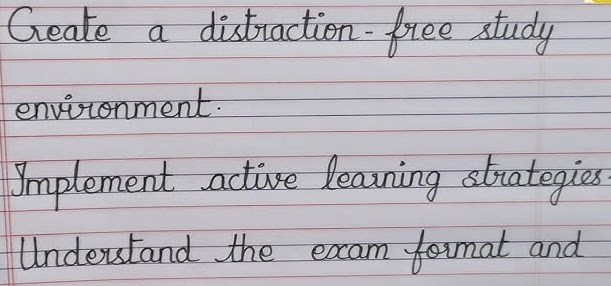 Create a distraction-free study
environment.
Implement active learning strategies.
Understand the exam format and